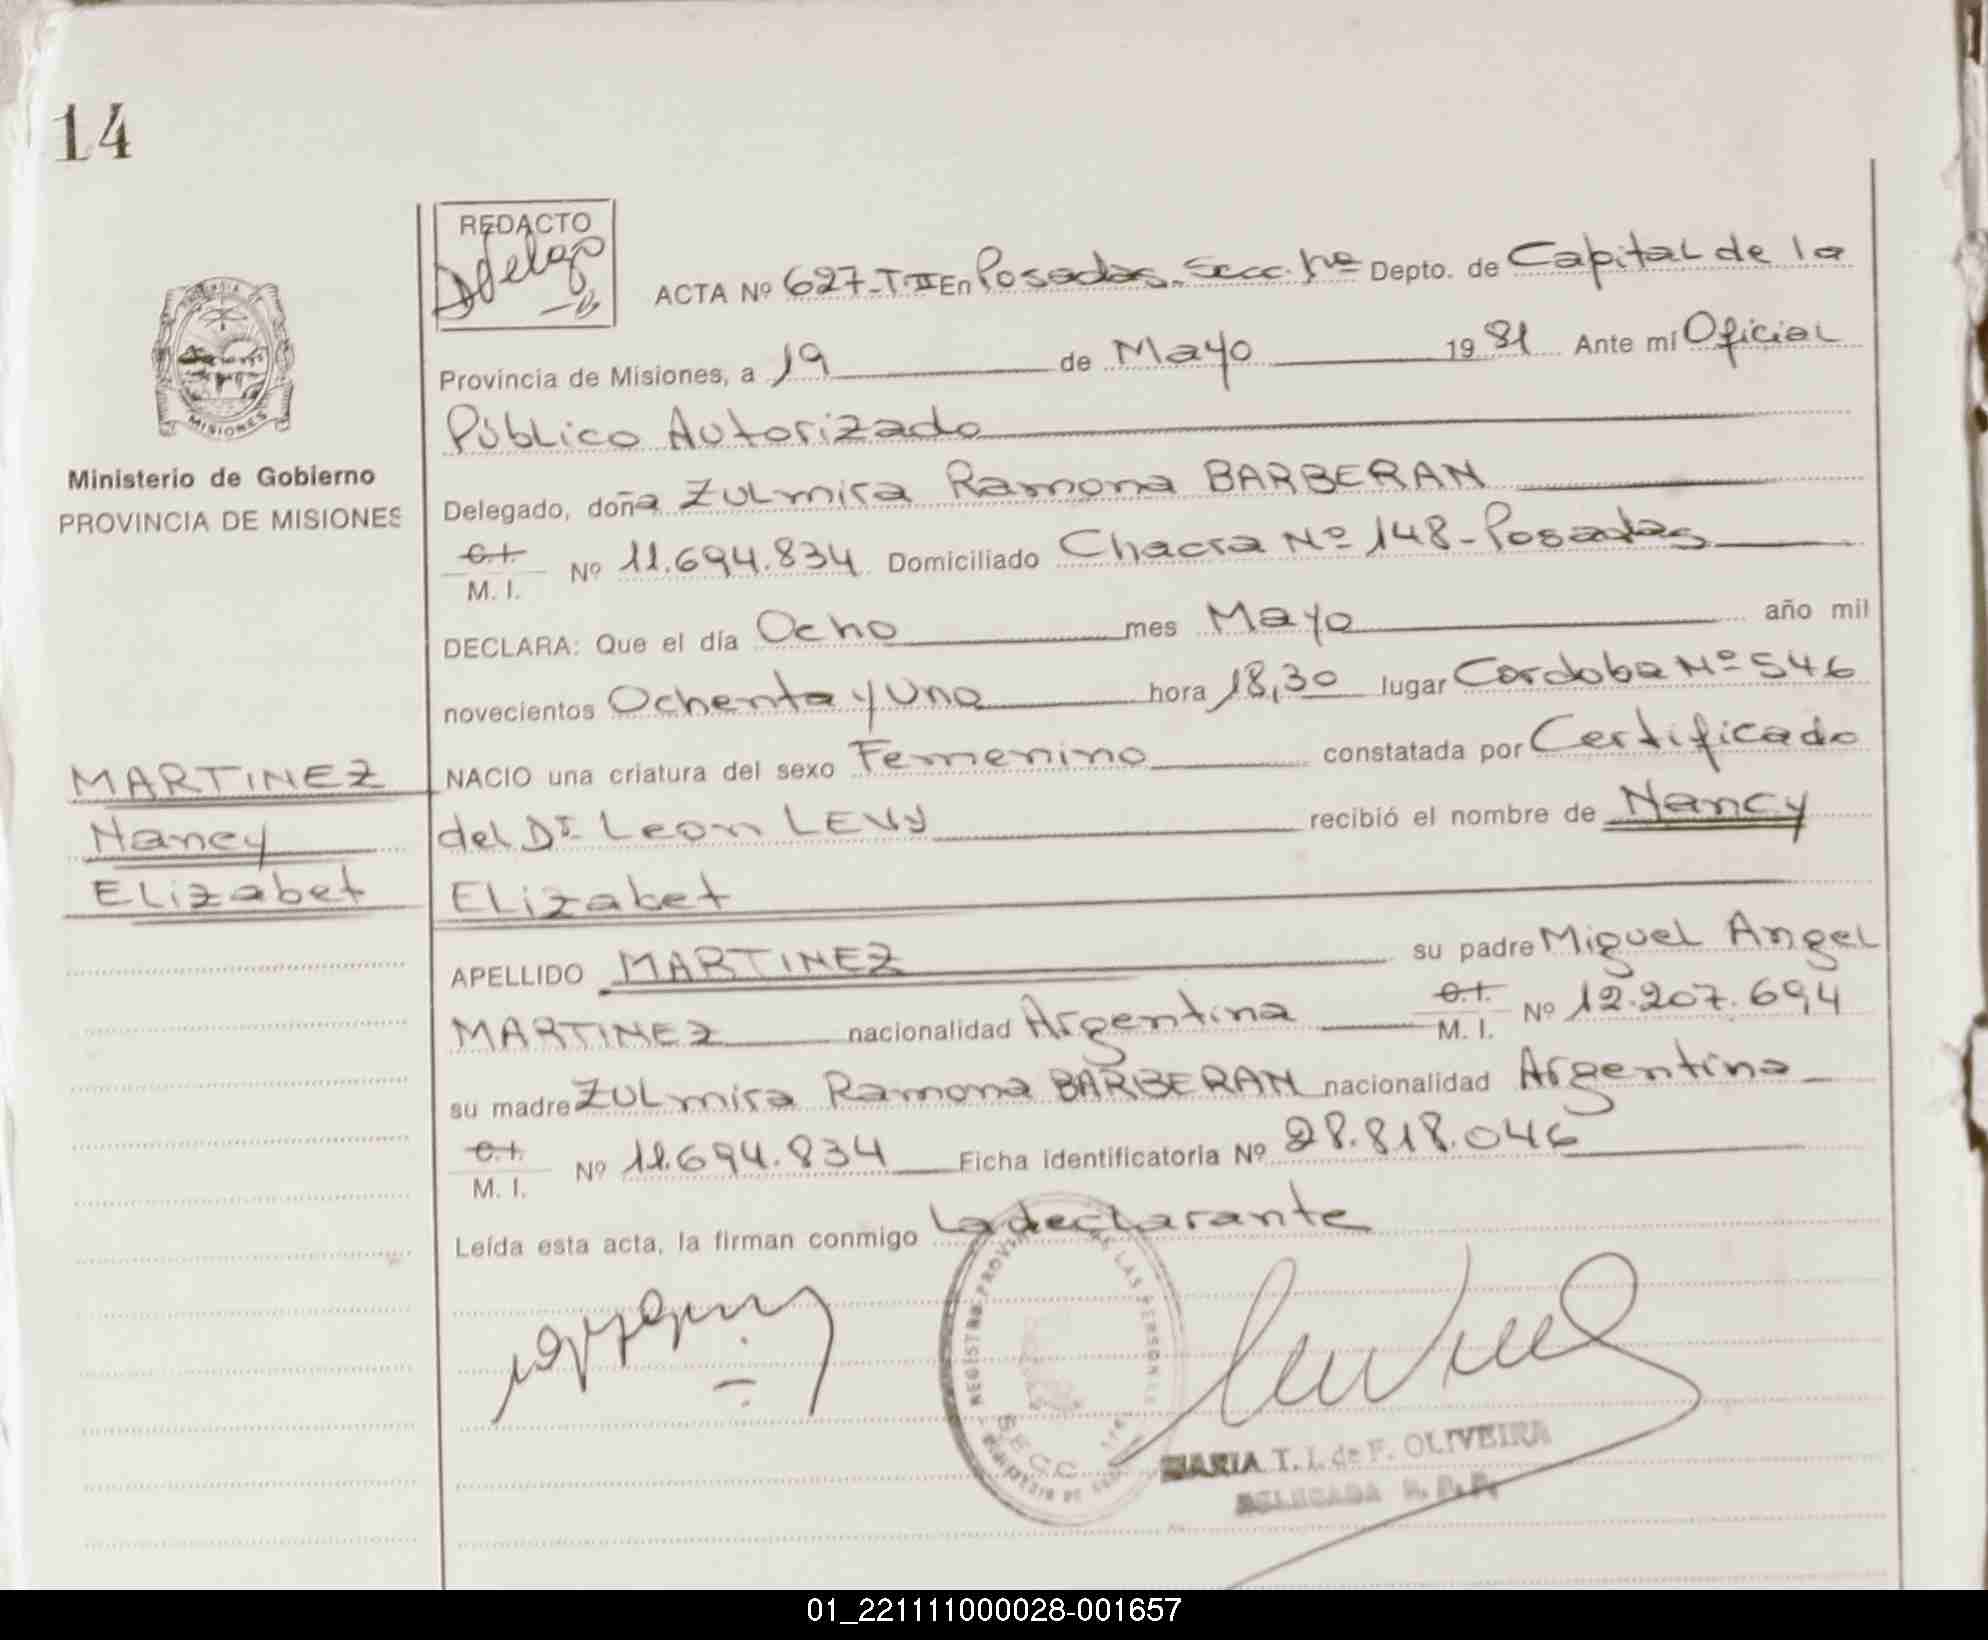 14
REDACTO
ACTA Nº 627-T·II En Posadas. Secc. 1ra Depto. de Capital de la
Provincia de Misiones, a 19 de Mayo 1981 Ante mí Oficial
Público Autorizado
MISIONES
Ministerio de Gobierno
PROVINCIA DE MISIONES
Delegado, doña Zulmira Ramona BARBERAN
C.I.
M. I. Nº 11.694.834 Domiciliado Chacra Nº 148-Posadas
DECLARA: Que el día Ocho mes Mayo año mil
novecientos Ochenta y Uno hora 18,30 lugar Cordoba Nº 546
MARTINEZ
Nancy
Elizabet
NACIO una criatura del sexo Femenino constatada por Certificado
del Dr Leon LEVY recibió el nombre de Nancy
Elizabet
APELLIDO MARTINEZ su padre Miguel Angel
MARTINEZ nacionalidad Argentina C.I. M. I. Nº 12.207.694
su madre Zulmira Ramona BARBERAN nacionalidad Argentina
C.I.
M. I. Nº 11.694.834 Ficha identificatoria Nº 28.818.046
Leída esta acta, la firman conmigo La declarante
REGISTRO PROVINCIAL DE LAS PERSONAS
SECC.
MARIA T. I. de F. OLIVEIRA
DELEGADA R. P. P.
01_221111000028-001657